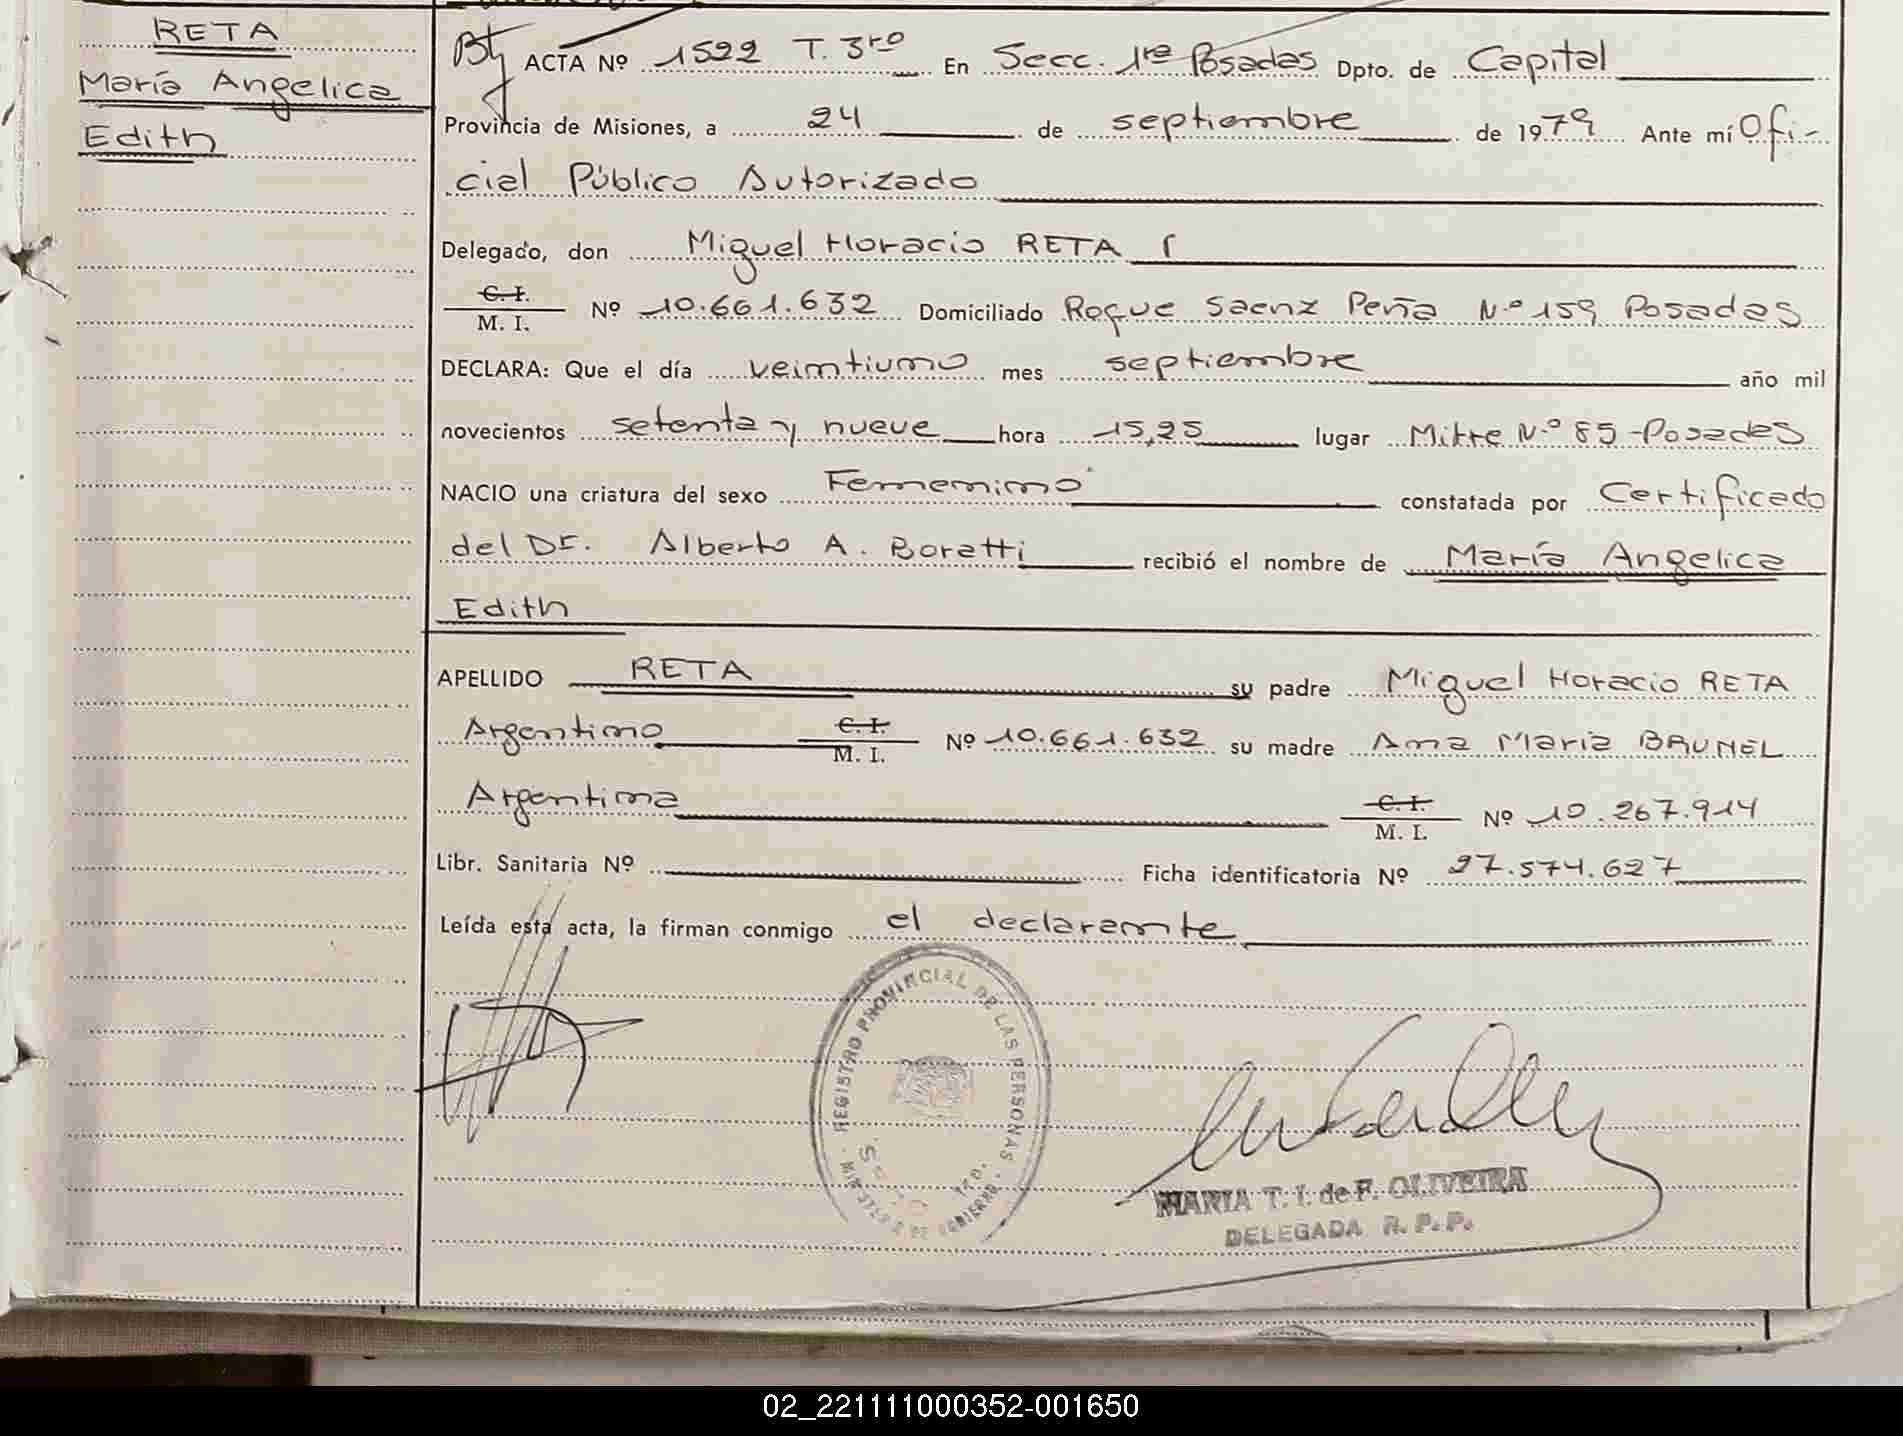 RETA
María Angelica
Edith
ACTA Nº 1522 T. 3ro En Secc. 1ra Posadas Dpto. de Capital
Provincia de Misiones, a 24 de septiembre de 1979 Ante mí Ofi-
cial Público Autorizado
Delegado, don Miguel Horacio RETA
C. I.
M. I. Nº 10.661.632 Domiciliado Roque Saenz Peña Nº 159 Posadas
DECLARA: Que el día veintiuno mes septiembre año mil
novecientos setenta y nueve hora 15,25 lugar Mitre Nº 85 - Posadas
NACIO una criatura del sexo Femenino constatada por Certificado
del Dr. Alberto A. Boratti recibió el nombre de María Angelica
Edith
APELLIDO RETA su padre Miguel Horacio RETA
Argentino C. I. M. I. Nº 10.661.632 su madre Ana Maria BRUNEL
Argentina C. I. M. I. Nº 10.267.914
Libr. Sanitaria Nº Ficha identificatoria Nº 27.574.627
Leída esta acta, la firman conmigo el declarante
REGISTRO PROVINCIAL DE LAS PERSONAS
MARIA T. I. de F. OLIVEIRA
DELEGADA R. P. P.
02_221111000352-001650